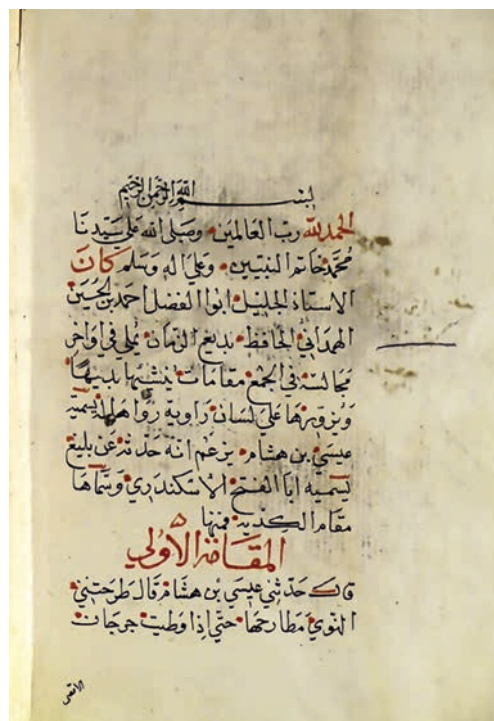 بسم الله الرحمن الرحيم
الحمد لله رب العالمين وصلى الله على سيدنا
محمد خاتم النبيين وعلى اله وسلم كان
الاستاذ الجليل ابوا الفضل احمد بن الحسين
الهمداني الحافظ بديع الزمان يملي في اواخر
مجالسه في الجمع مقامات ينشيها بديهًا
ويزويها على لسان راوية رواها له يسميه
عيسى بن هشام يزعم انه حدثه عن بليغ
يسميه ابا الفتح الاسكندري وسماها
مقام الكدية فمنها
المقامة الأولى
قال حدثني عيسى بن هشام قال طرحتني
النوى مطارحها حتى اذا وطيت جرجان
الاقصى